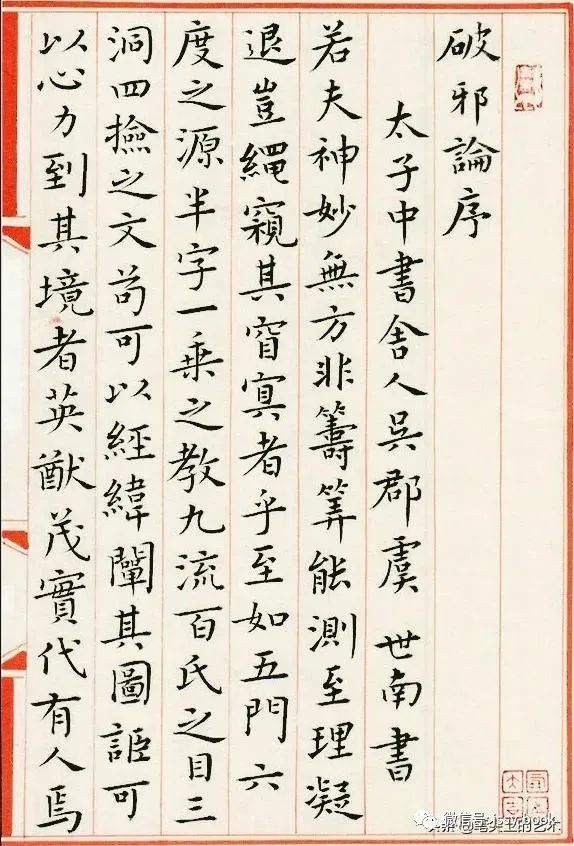 破邪論序
太子中書舍人吳郡虞世南書
若夫神妙無方非籌筭能測至理凝
退豈繩窺其窅冥者乎至如五門六
度之源半字一乗之教九流百氏之目三
洞四撿之文苟可以經緯闡其圖詎可
以心力到其境者英猷茂實代有人焉